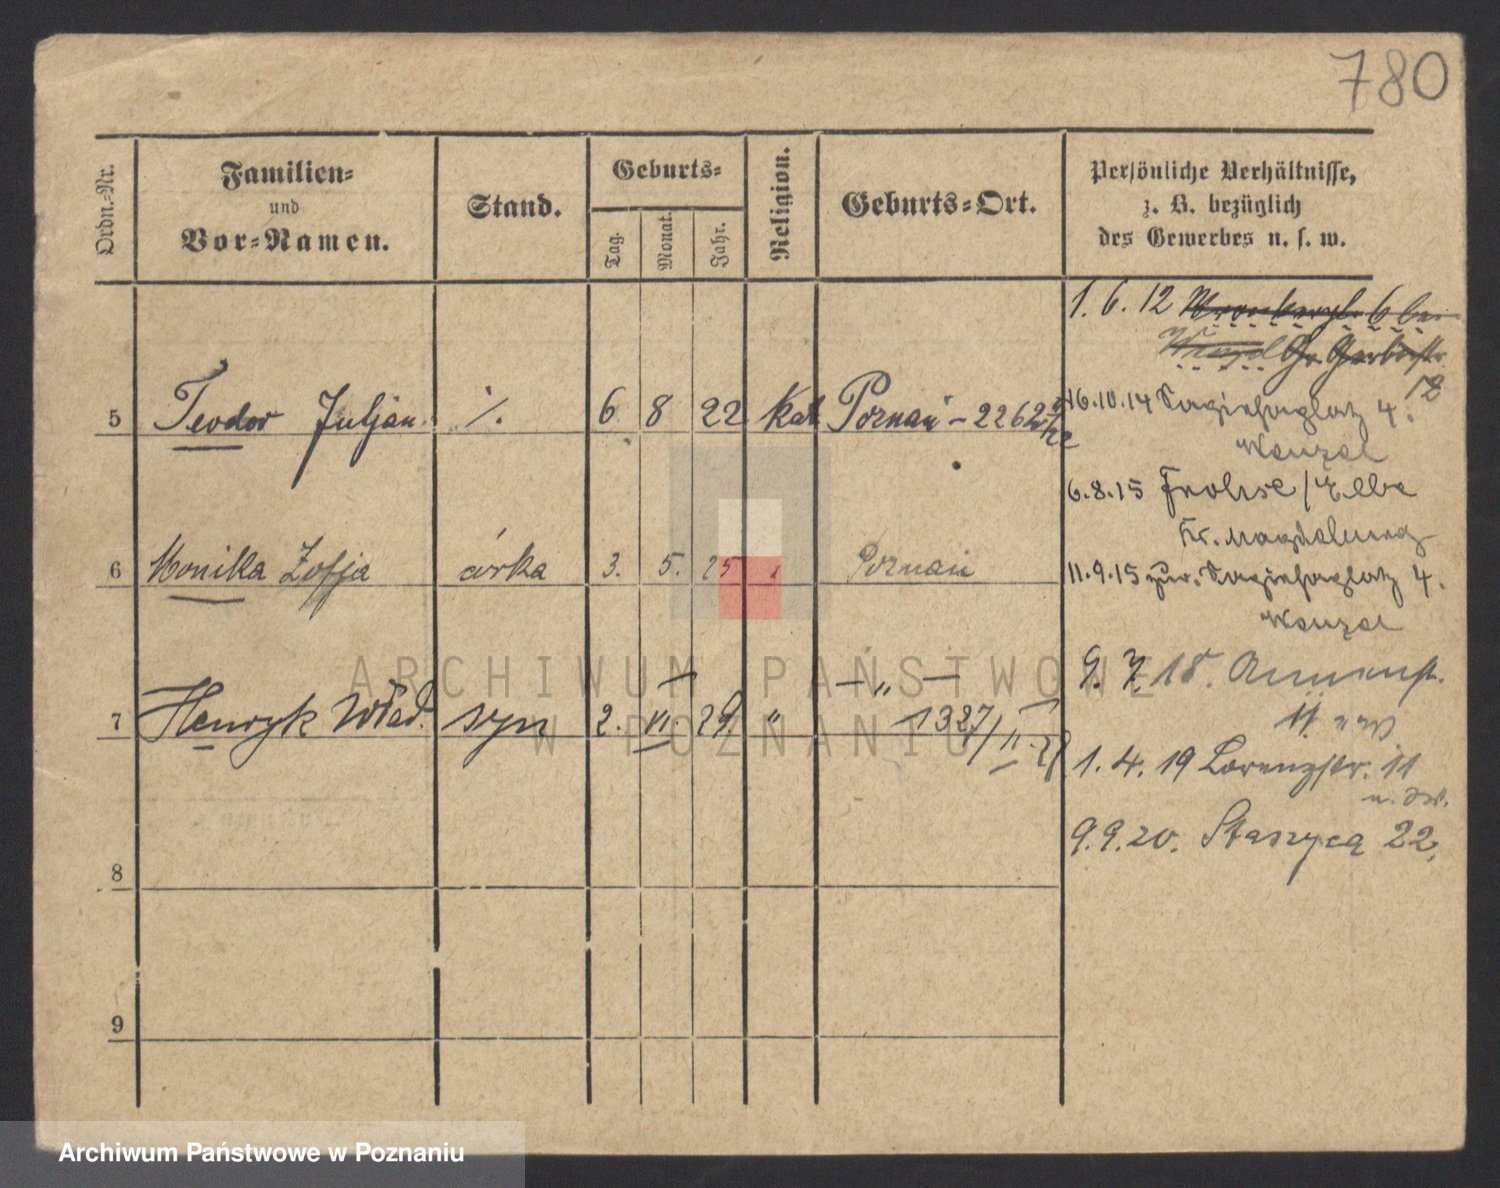 780
Ordn.-Nr.
Familien-
und
Vor-Namen.
Stand.
Geburts-
Tag.
Monat.
Jahr.
Religion.
Geburts-Ort.
Persönliche Verhältnisse,
z. B. bezüglich
des Gewerbes u. s. w.
5 Teodor Juljan. ./. 6 8 22 Kat Poznań - 2262
6 Monika Zofja córka 3. 5. 25 Poznań
7 Henryk Wład. syn 2. VI 29. " — " —
1327/II.29
8
9
1. 6. 12 6 bei
Gr. Gerberstr.
12
16.10.14 Sapiehaplatz 4.
Wenzel
6.8.15 Frohse / Elbe
Kr. Magdeburg
11.9.15 zur. Sapiehaplatz 4.
Wenzel
9. 7. 18.
11
1. 4. 19 Lorenzstr. 11
9.9.20. Staszyca 22.
ARCHIWUM PAŃSTWOWE
W POZNANIU
Archiwum Państwowe w Poznaniu